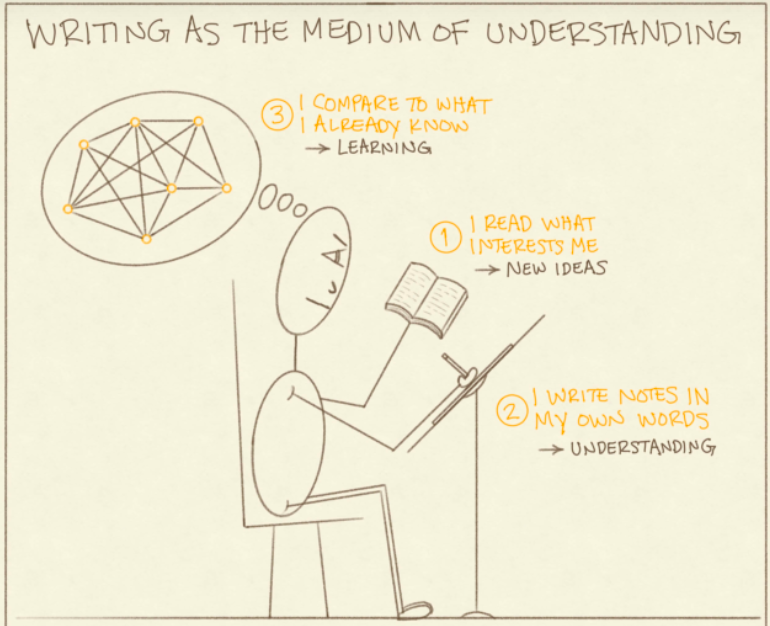 WRITING AS THE MEDIUM OF UNDERSTANDING
③ I COMPARE TO WHAT
I ALREADY KNOW
→ LEARNING
① I READ WHAT
INTERESTS ME
→ NEW IDEAS
② I WRITE NOTES IN
MY OWN WORDS
→ UNDERSTANDING